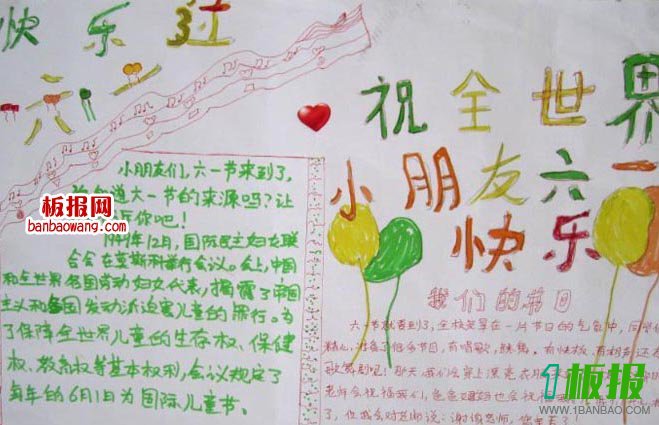 快乐过
六一
祝全世界
小朋友六一
快乐
小朋友们,六一节来到了,
道六一节的来源吗?让
你吧!
1949年12月,国际民主妇女联
合会在莫斯科举行会议。会上,中国
和全世界各国劳动妇女代表,揭露了帝国
主义和各国反动派迫害儿童的罪行。为
了保障全世界儿童的生存权、保健
权、教育权等基本权利,会议规定了
每年的6月1日为国际儿童节。
我们的节日
六一节就要到了,全校笼罩在一片节日的气氛中,
精心准备了很多节目,有唱歌,跳舞,有快板,有相声还
歌舞剧吧!那天,我们会穿上漂亮衣
老师会祝福我们,爸爸妈妈也会祝福
了,但我会对老师说:谢谢老师,您辛苦了!
板报网
banbaowang.com
1板报
WWW.1BANBAO.COM